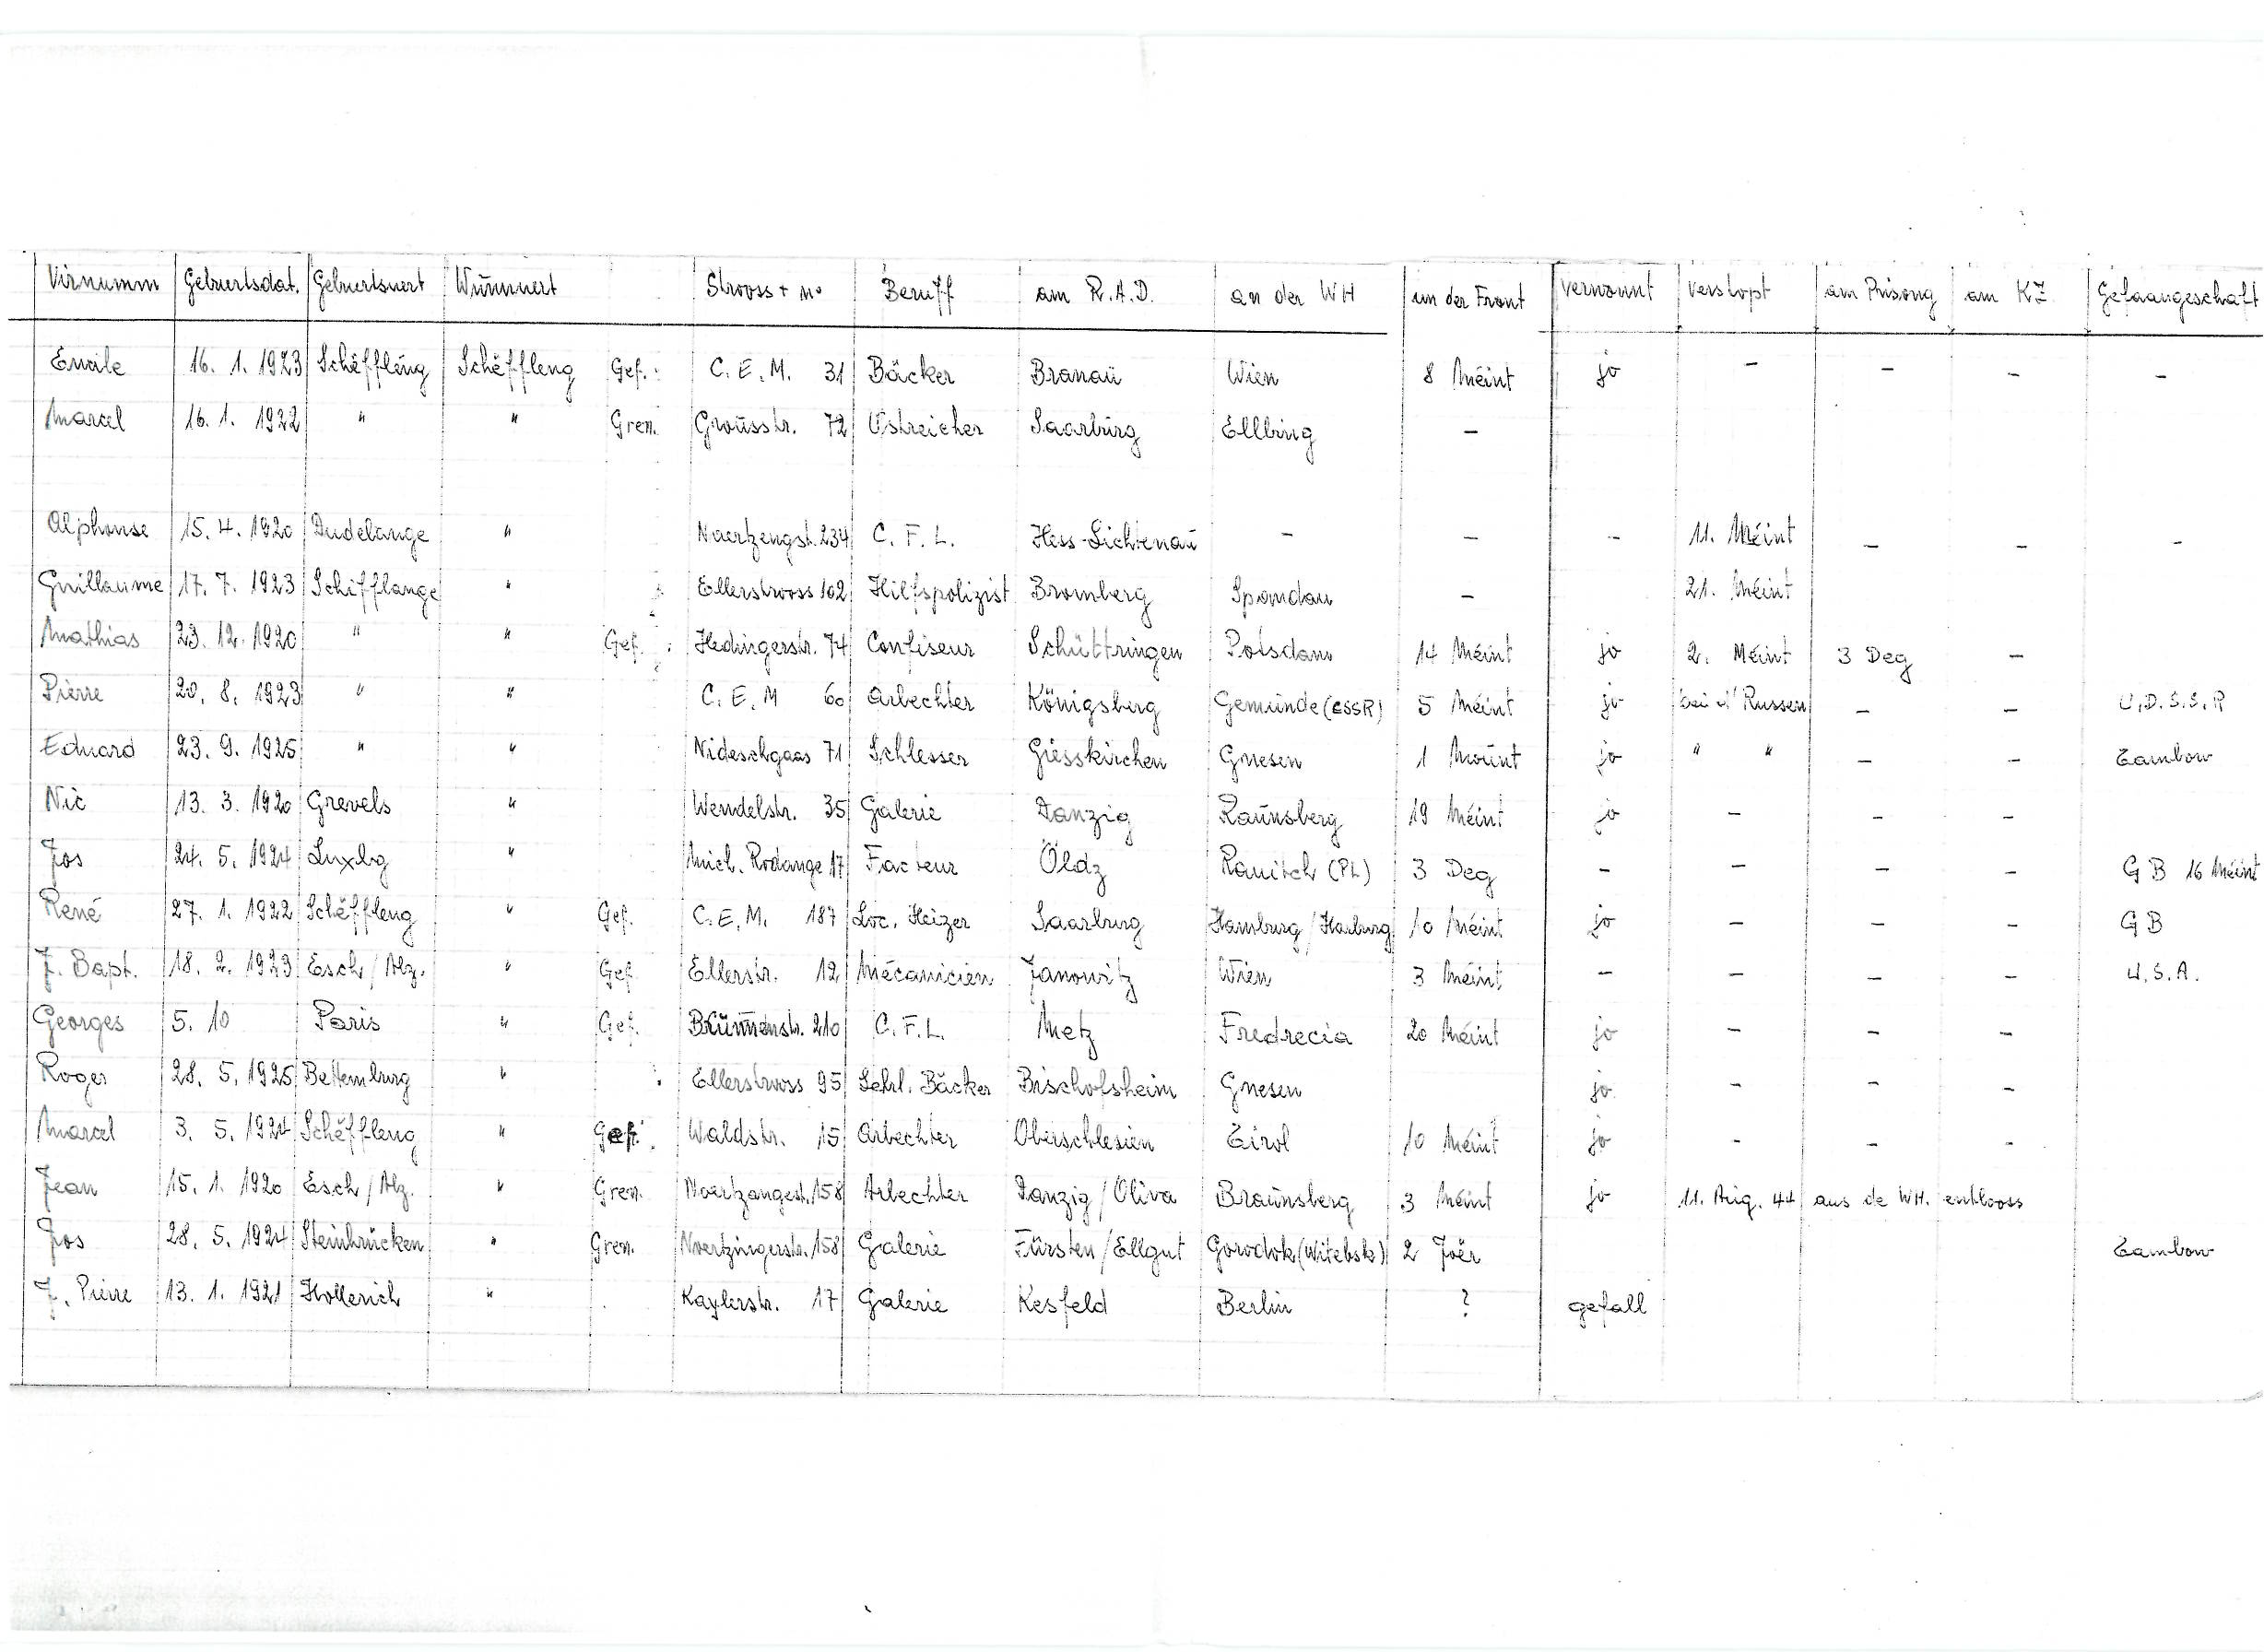 Virnumm Geburtsdat. Gebuertsuert Wunnuert Strooss + No Beruff am R.A.D. an der WH un der Front verwonnt verstopt am Prisong am KZ Gefaangeschaft
Emile 16. 1. 1923 Schëffleng Schëffleng Gef. C. E. M. 31 Bäcker Branau Wien 8 Méint jo - - - -
Marcel 16. 1. 1922 " " Gren. Grousstr. 72 Ustreicher Saarburg Ellbing -
Alphonse 15. 4. 1920 Dudelange " Noertzengst. 234 C. F. L. Hess-Lichtenau - - - 11. Méint - - -
Guillaume 17. 7. 1923 Schifflange " Ellerstrooss 102 Hilfspolizist Bromberg Spandau - 21. Méint
Mathias 23. 12. 1920 " " Gef. Hedingerstr. 74 Confiseur Schüttringen Potsdam 14 Méint jo 2. Méint 3 Deg -
Pierre 20. 8. 1923 " " C. E. M 60 Arbechter Königsberg Gemünde (CSSR) 5 Méint jo bei d' Russen - - U.D.S.S.R
Eduard 23. 9. 1925 " " Nideschgaas 71 Schlesser Giesskirchen Gnesen 1 Mount jo " " - - Tambow
Nic 13. 3. 1920 Grevels " Wendelstr. 35 Galerie Danzig Raunsberg 19 Méint jo - - -
Jos 24. 5. 1924 Luxbg " Mich. Rodange 17 Facteur Öldz Rauitch (PL) 3 Deg - - - - GB 16 Méint
René 27. 1. 1922 Schëffleng " Gef. C. E. M. 187 Loc. Heizer Saarburg Hamburg / Harburg 10 Méint jo - - - GB
J. Bapt. 18. 2. 1923 Esch / Alz. " Gef. Ellerstr. 12 Mécanicien Janowitz Wien 3 Méint - - - - U.S.A.
Georges 5. 10 Paris " Gef. Brünnenstr. 210 C. F. L. Metz Fredrecia 20 Méint jo - - -
Roger 28. 5. 1925 Bettemburg " Ellerstrooss 95 Lehrl. Bäcker Bischofsheim Gnesen jo - - -
Marcel 3. 5. 1924 Schëffleng " Gef. Waldstr. 15 Arbechter Oberschlesien Tirol 10 Méint jo - - -
Jean 15. 1. 1920 Esch / Alz. " Gren. Noertzangest. 158 Arbechter Danzig / Oliva Braunsberg 3 Méint jo 11. Aug. 44 aus de WH. entlooss
Jos 28. 5. 1924 Steinbrücken " Gren. Noertzingerstr. 158 Galerie Fürsten / Ellgut Gorodok (Witebsk) 2 Joër Tambow
J. Pierre 13. 1. 1921 Hollerich " Kaylerstr. 17 Galerie Kesfeld Berlin ? gefall